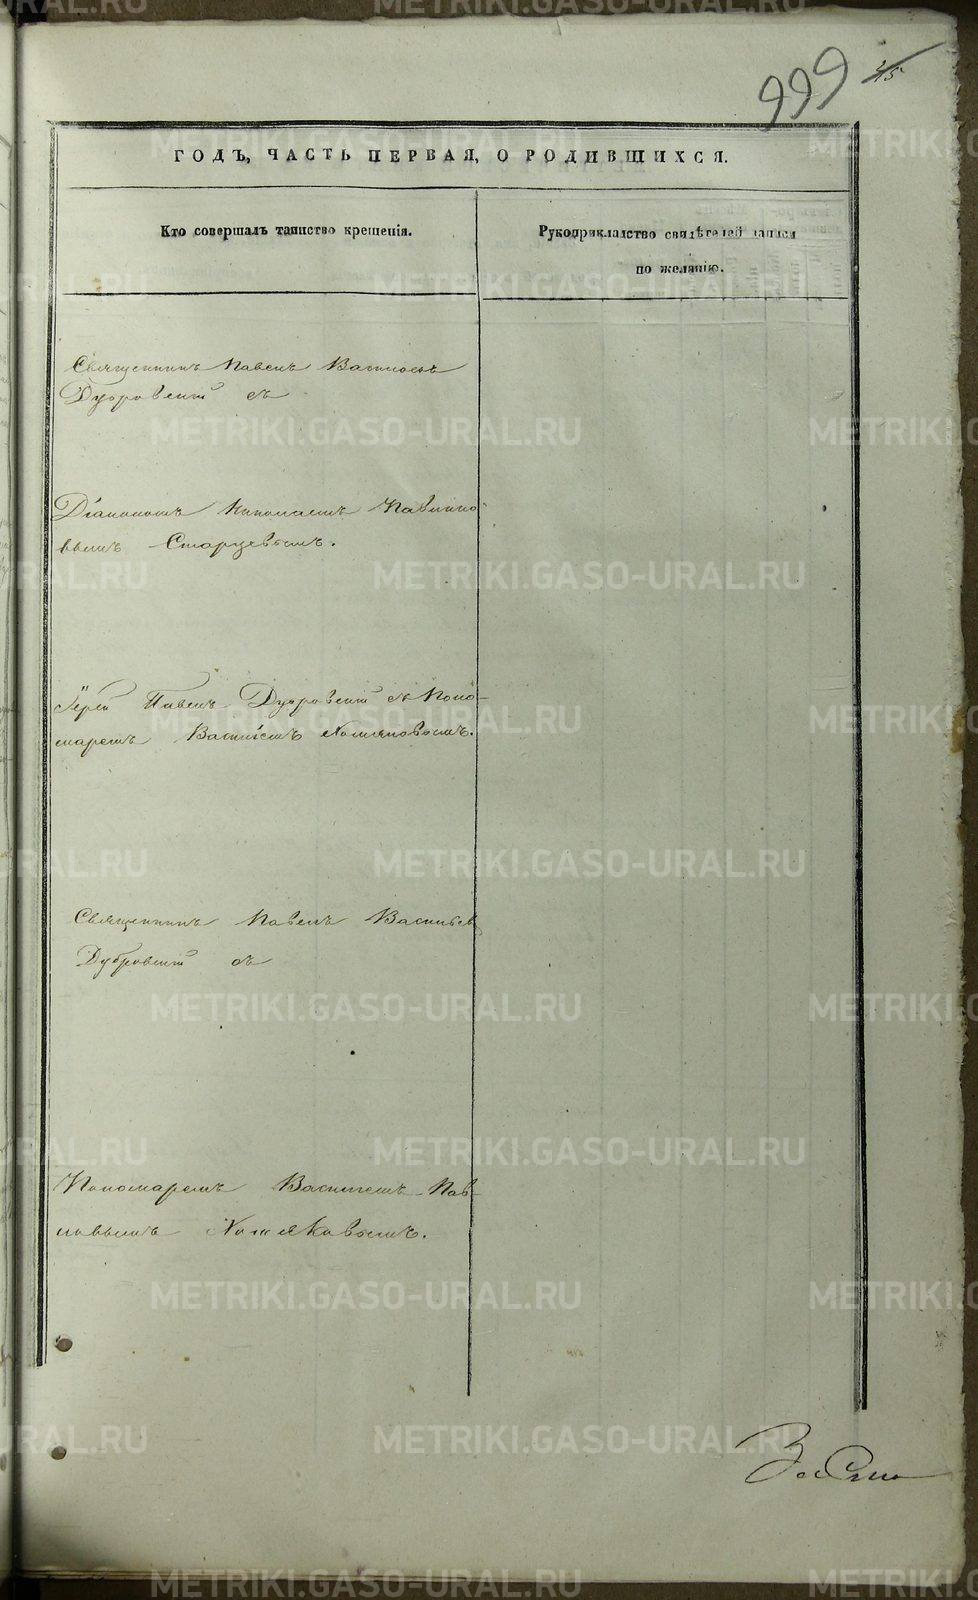 999 45
ГОДЪ, ЧАСТЬ ПЕРВАЯ, О РОДИВШИХСЯ.
Кто совершалъ таинство крещенія.
Рукоприкладство свидѣтелей записи
по желанію.
Священникъ Павелъ Васильевъ
Дубровскій съ
Діакономъ Николаемъ Павлино
вымъ Старцевымъ.
Іерей Павелъ Дубровскій съ Поно-
маремъ Василіемъ
Священникъ Павелъ Васильев
Дубровскій съ
Пономаремъ Василіемъ Пав-
ловымъ
METRIKI.GASO-URAL.RU